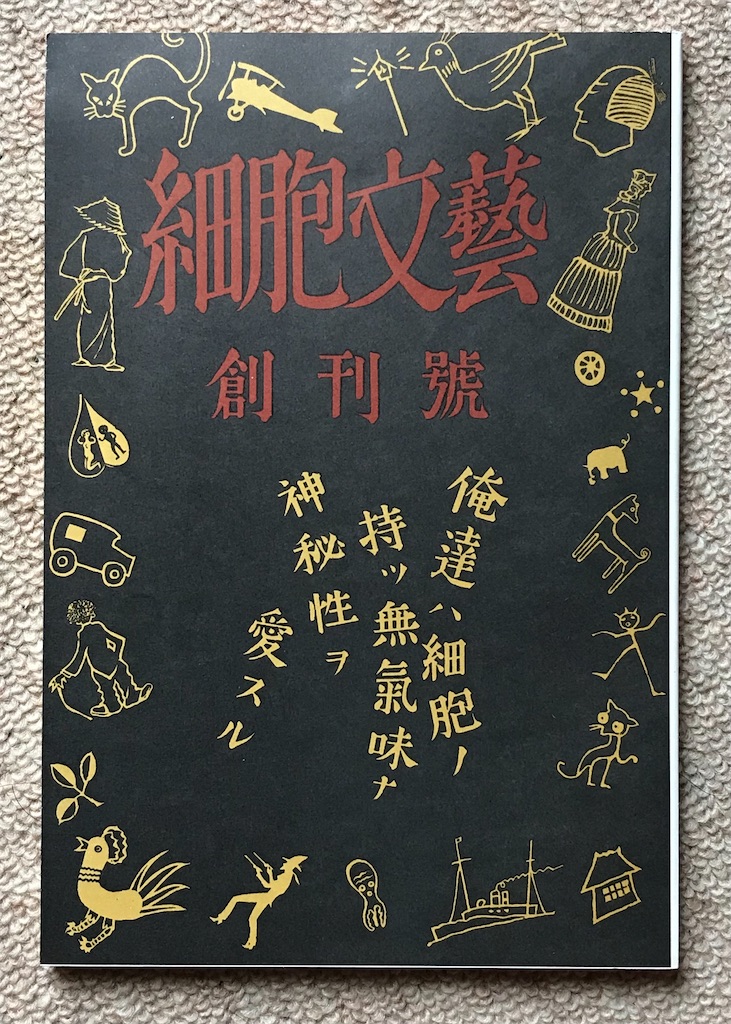 細胞文藝
創刊號
俺達ハ細胞ノ
持ツ無氣味ナ
神秘性ヲ
愛スル